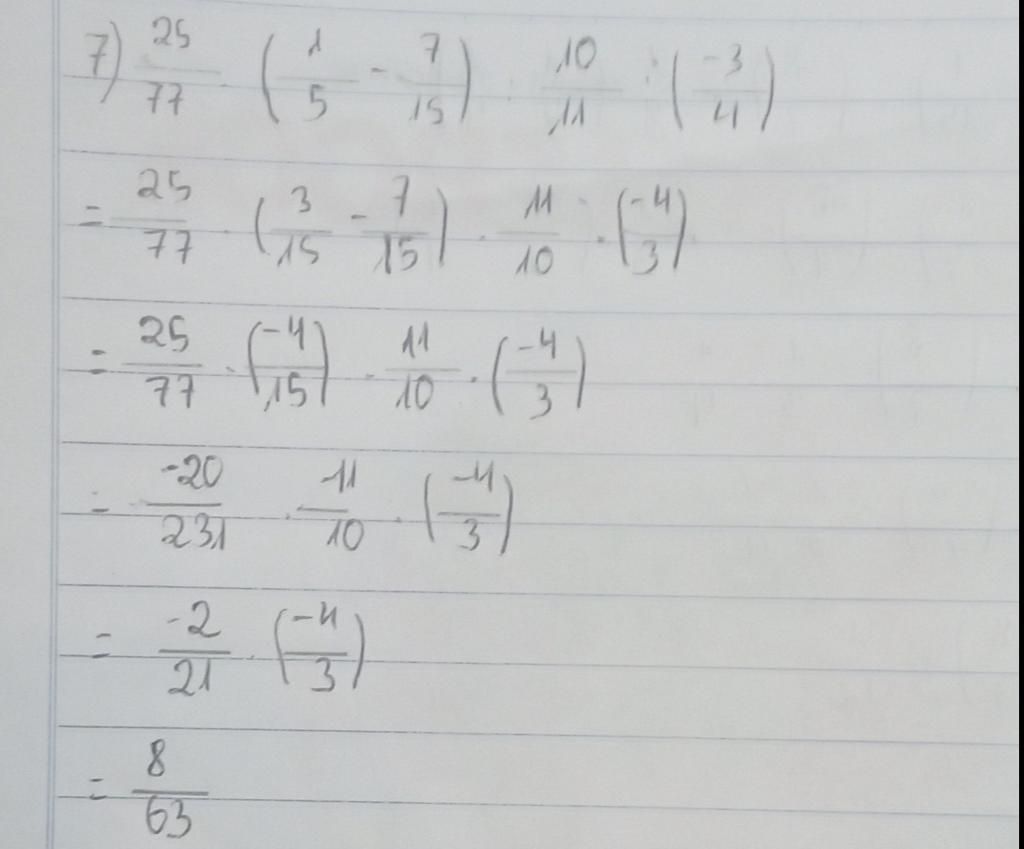 7) 25/77 · (1/5 - 7/15) : 10/11 : (-3/4)
= 25/77 · (3/15 - 7/15) · 11/10 · (-4/3)
= 25/77 · (-4/15) · 11/10 · (-4/3)
= -20/231 · 11/10 · (-4/3)
= -2/21 · (-4/3)
= 8/63